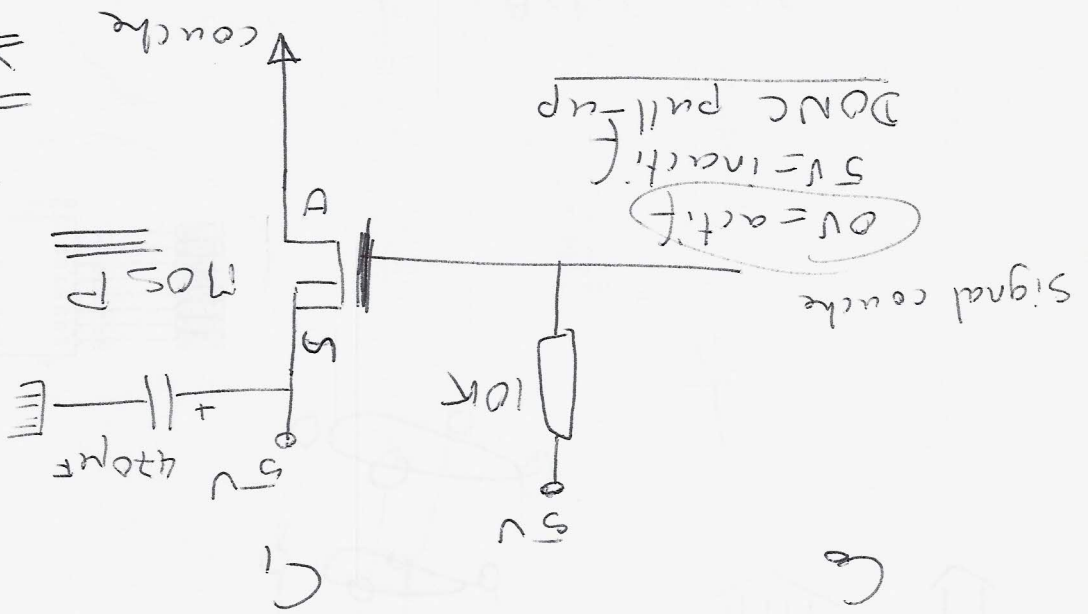 C0
C1
5V
5V
470µF
+
10K
S
MOS P
Signal couche
0V = actif
5V = inactif
DONC pull-up
D
couche